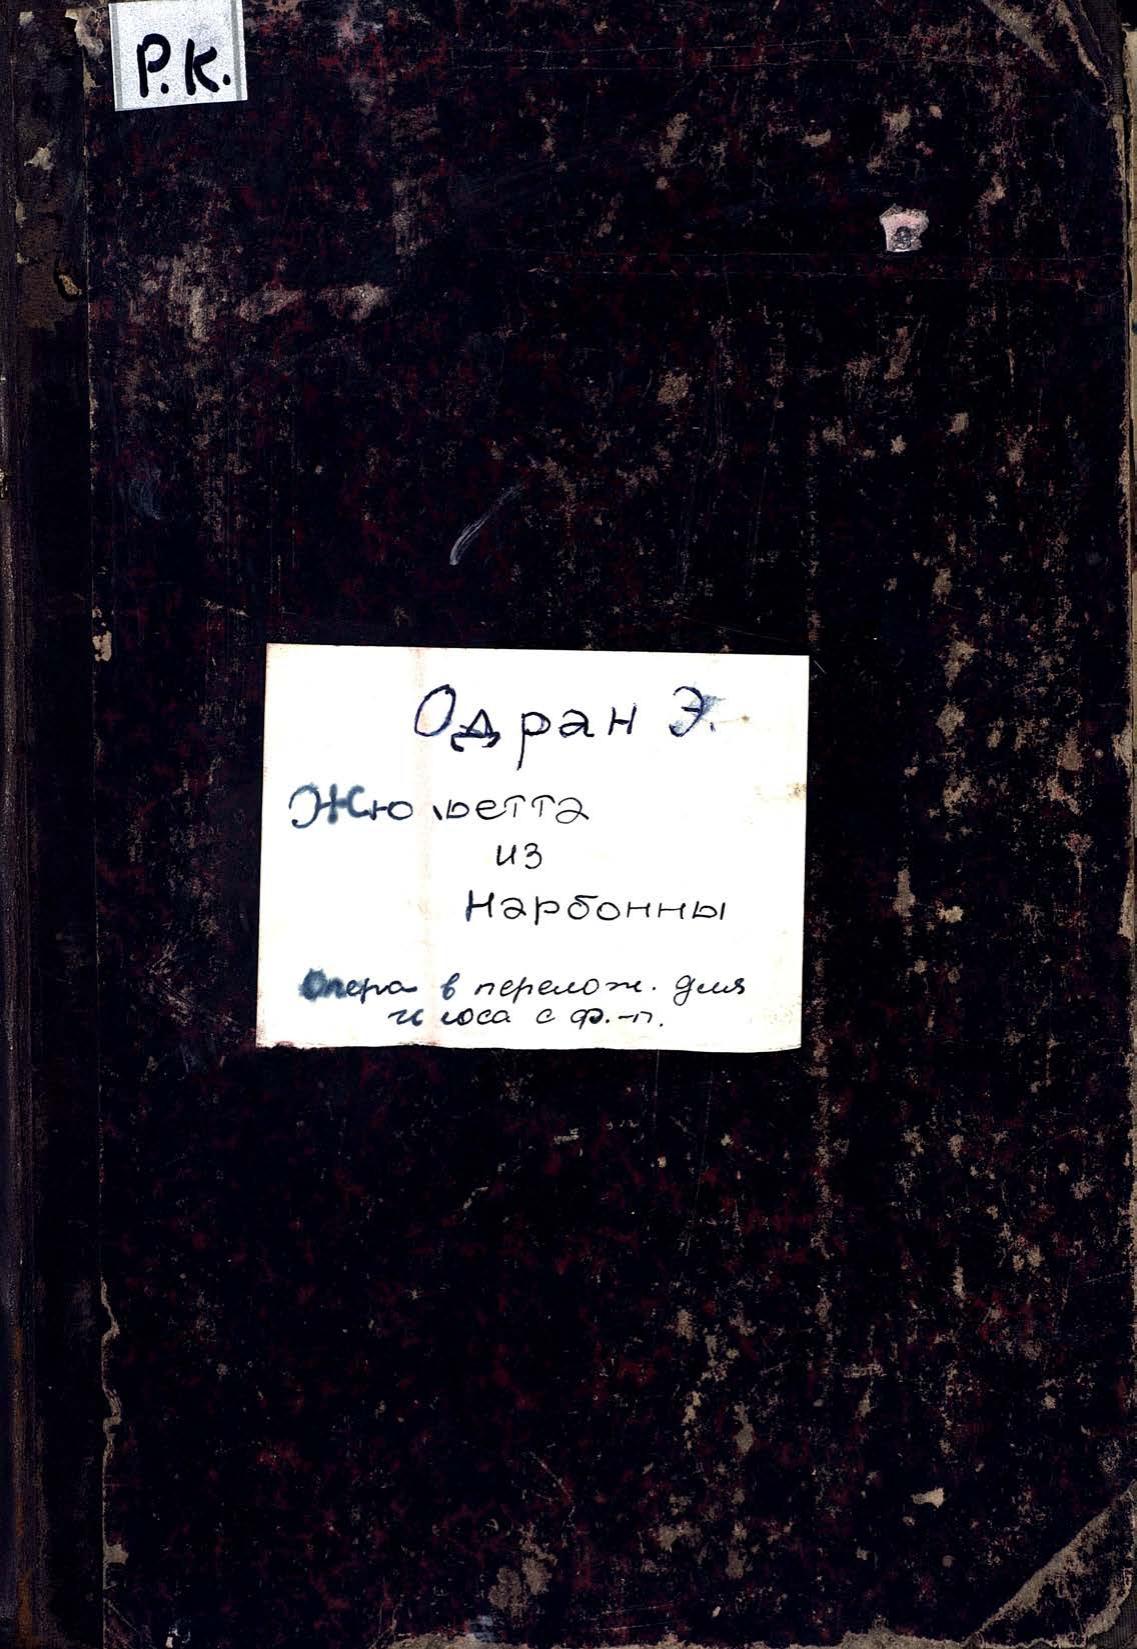 Р.К.
Одран Э.
Жюльетта
из
Нарбонны
Опера в перелож. для
голоса с ф.-п.